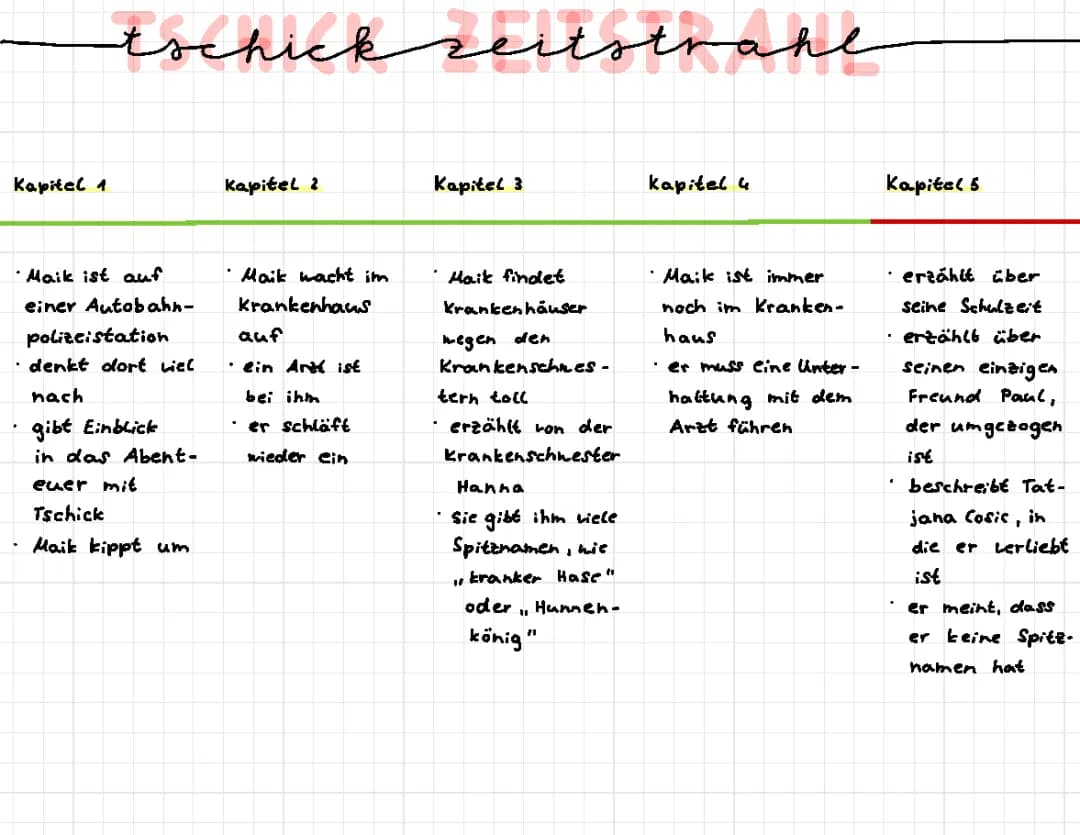 TSCHICK ZEITSTRAHL
tschick zeitstrahl
Kapitel 1
Kapitel 2
Kapitel 3
Kapitel 4
Kapitel 5
· Maik ist auf
einer Autobahn-
polizeistation
· denkt dort viel
nach
· gibt Einblick
in das Abent-
euer mit
Tschick
· Maik kippt um
· Maik wacht im
Krankenhaus
auf
· ein Arzt ist
bei ihm
· er schläft
wieder ein
· Maik findet
Krankenhäuser
wegen den
Krankenschwes-
tern toll
· erzählt von der
Krankenschwester
Hanna
· sie gibt ihm viele
Spitznamen, wie
„kranker Hase"
oder „Hunnen-
könig"
· Maik ist immer
noch im Kranken-
haus
· er muss eine Unter-
haltung mit dem
Arzt führen
· erzählt über
seine Schulzeit
· erzählt über
seinen einzigen
Freund Paul,
der umgezogen
ist
· beschreibt Tat-
jana Cosic, in
die er verliebt
ist
· er meint, dass
er keine Spitz-
namen hat